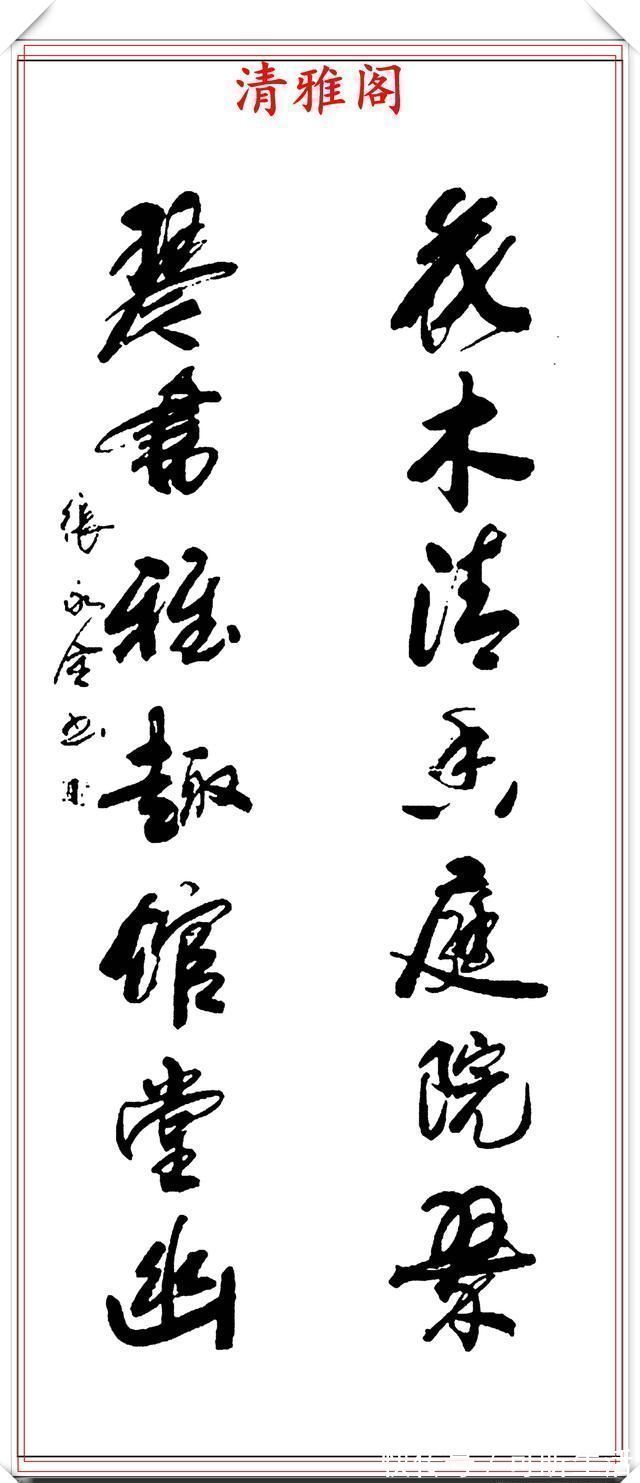 清雅阁
花木清香庭院翠
琴書雅趣馆堂幽
張永金书